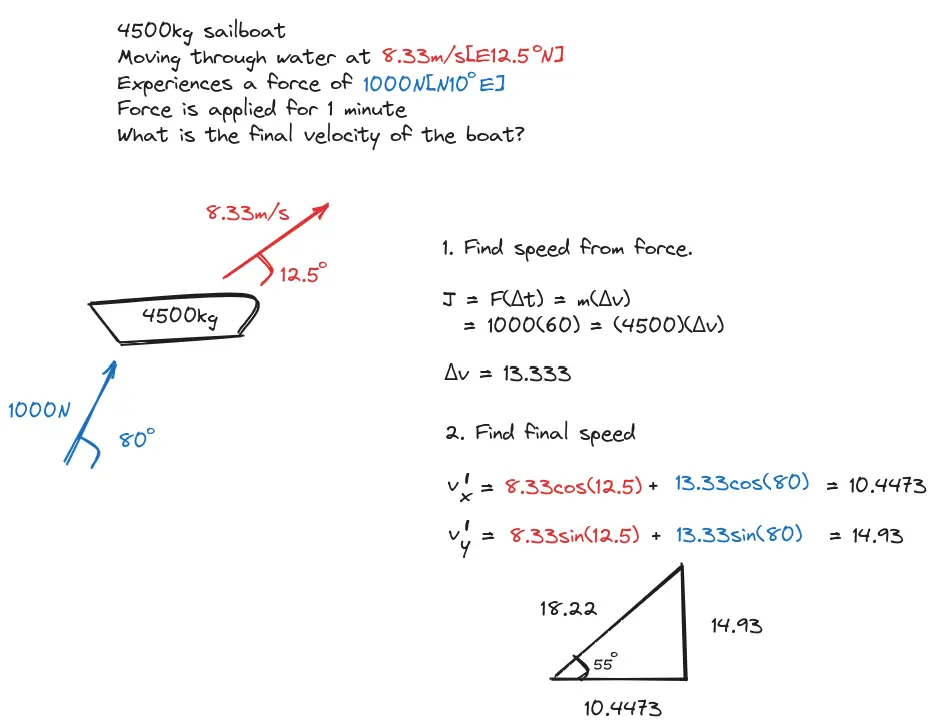 4500kg sailboat
Moving through water at 8.33m/s[E12.5°N]
Experiences a force of 1000N[N10°E]
Force is applied for 1 minute
What is the final velocity of the boat?
8.33m/s
12.5°
4500kg
1000N
80°
1. Find speed from force.
J = F(Δt) = m(Δv)
= 1000(60) = (4500)(Δv)
Δv = 13.333
2. Find final speed
v'x = 8.33cos(12.5) + 13.33cos(80) = 10.4473
v'y = 8.33sin(12.5) + 13.33sin(80) = 14.93
18.22
14.93
55°
10.4473